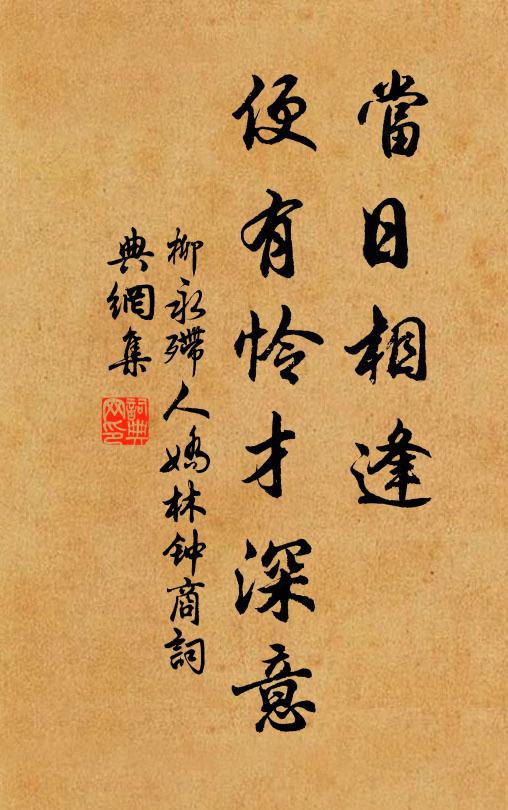 當日相逢
便有怜才深意
柳永殢人嬌林钟商詞
典網集
詞典
網印